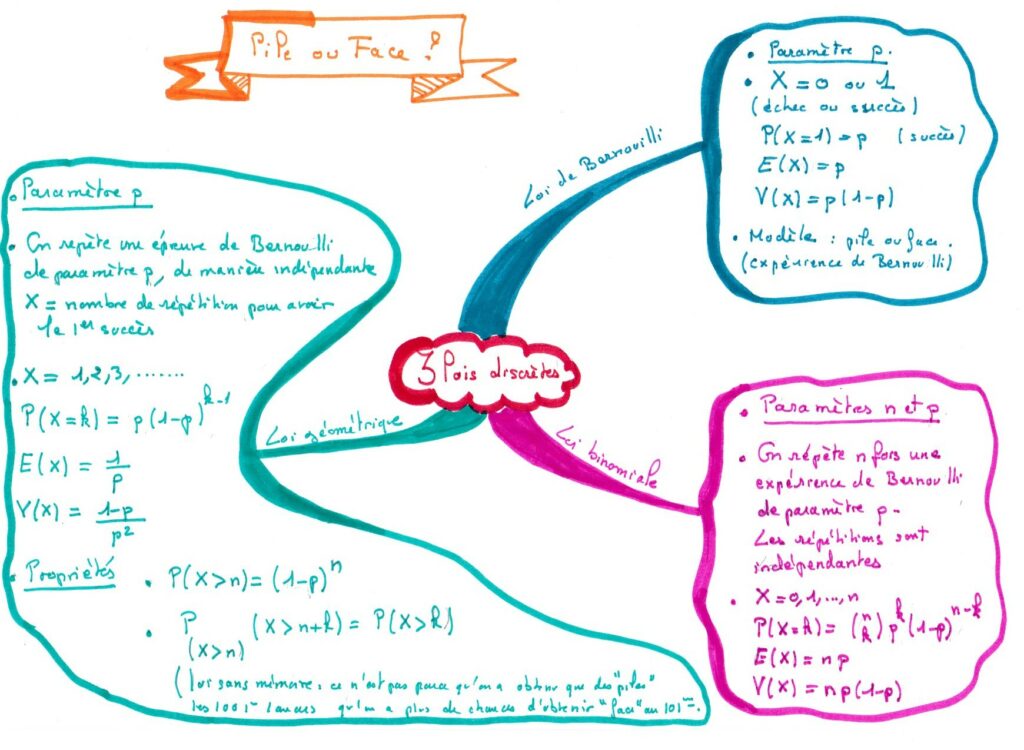 Pile ou Face ?
3 lois discrètes
Loi de Bernouilli
• Paramètre p.
• X = 0 ou 1
(échec ou succès)
P(X=1) = p (succès)
E(X) = p
V(X) = p(1-p)
• Modèle : pile ou face.
(expérience de Bernoulli)
Loi binomiale
• Paramètres n et p
• On répète n fois une
expérience de Bernoulli
de paramètre p.
Les répétitions sont
indépendantes
• X = 0, 1, ..., n
P(X=k) = (n k) p^k (1-p)^{n-k}
E(X) = n p
V(X) = n p (1-p)
Loi géométrique
• Paramètre p
• On répète une épreuve de Bernoulli
de paramètre p, de manière indépendante
X = nombre de répétition pour avoir
le 1er succès
• X = 1, 2, 3, .......
P(X=k) = p(1-p)^{k-1}
E(X) = 1/p
V(X) = (1-p)/p²
• Propriétés
• P(X>n) = (1-p)^n
• P_{(X>n)} (X>n+k) = P(X>k)
(loi sans mémoire : ce n'est pas parce qu'on a obtenu que des "piles"
les 100 1ers lancers qu'on a plus de chances d'obtenir "face" au 101ème.